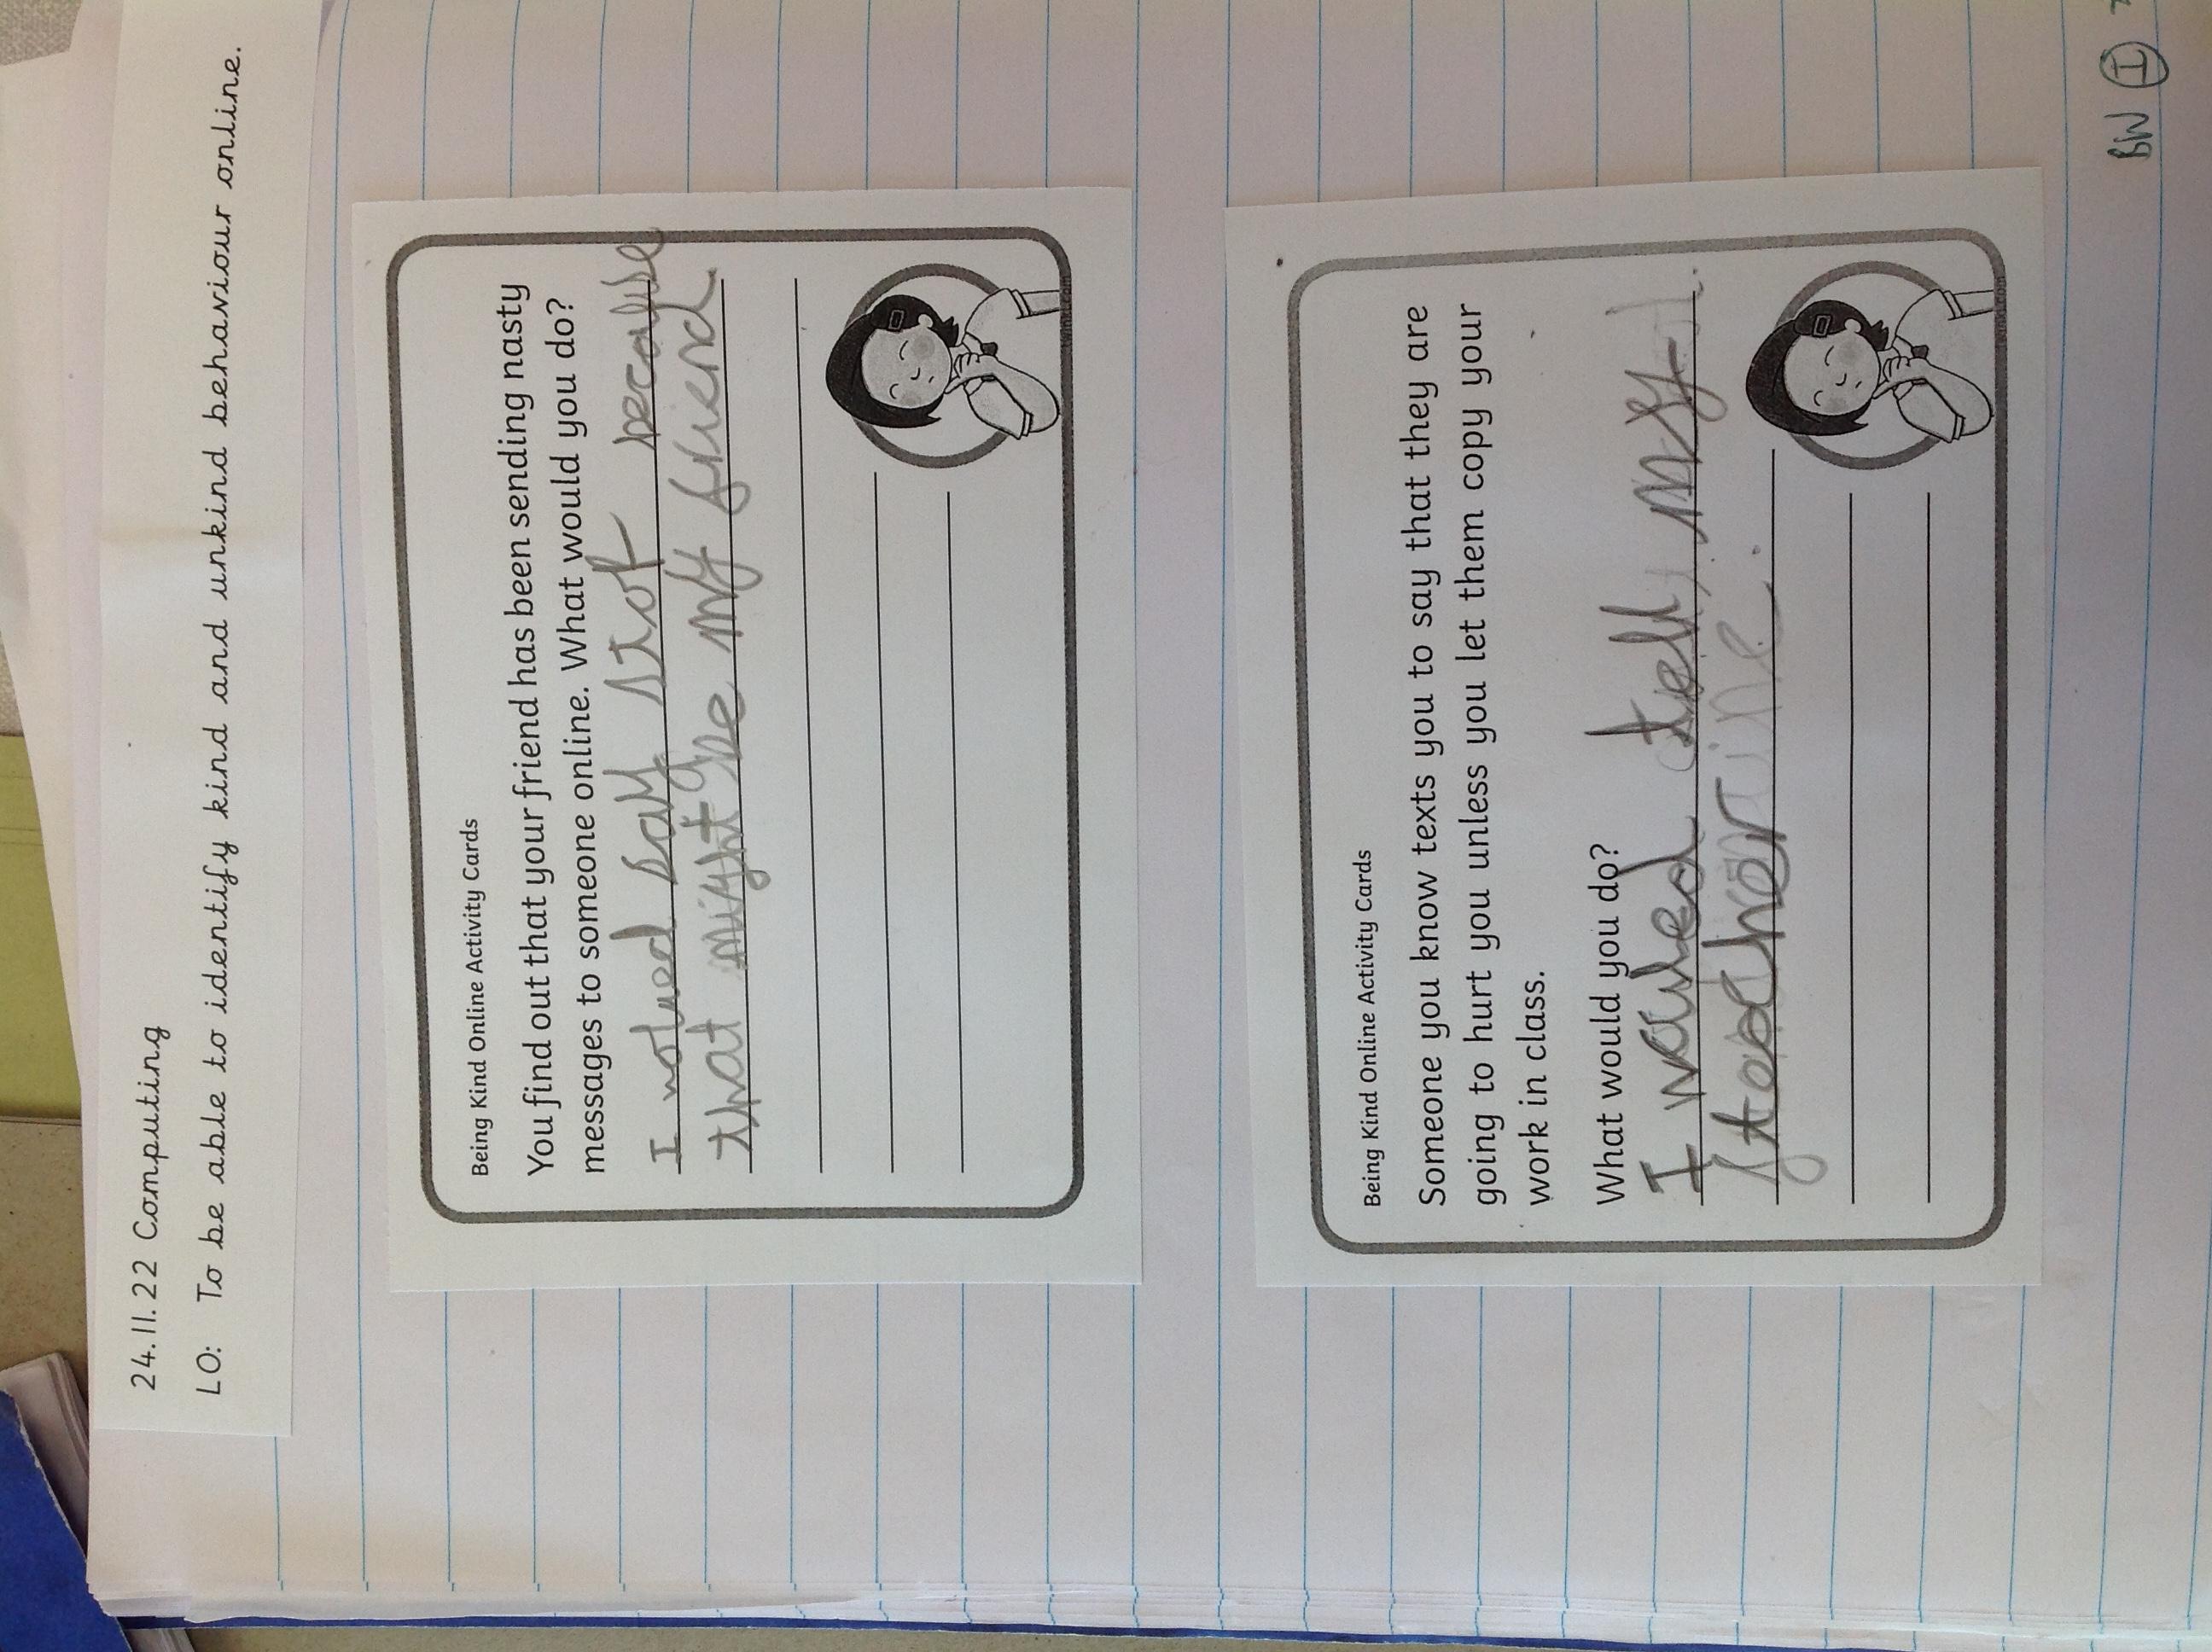 24.11.22 Computing
LO: To be able to identify kind and unkind behaviour online.
Being Kind Online Activity Cards
You find out that your friend has been sending nasty
messages to someone online. What would you do?
I wolued say stop because
that might be my friend
Being Kind Online Activity Cards
Someone you know texts you to say that they are
going to hurt you unless you let them copy your
work in class.
What would you do?
I waued tell my
teacher
BW I